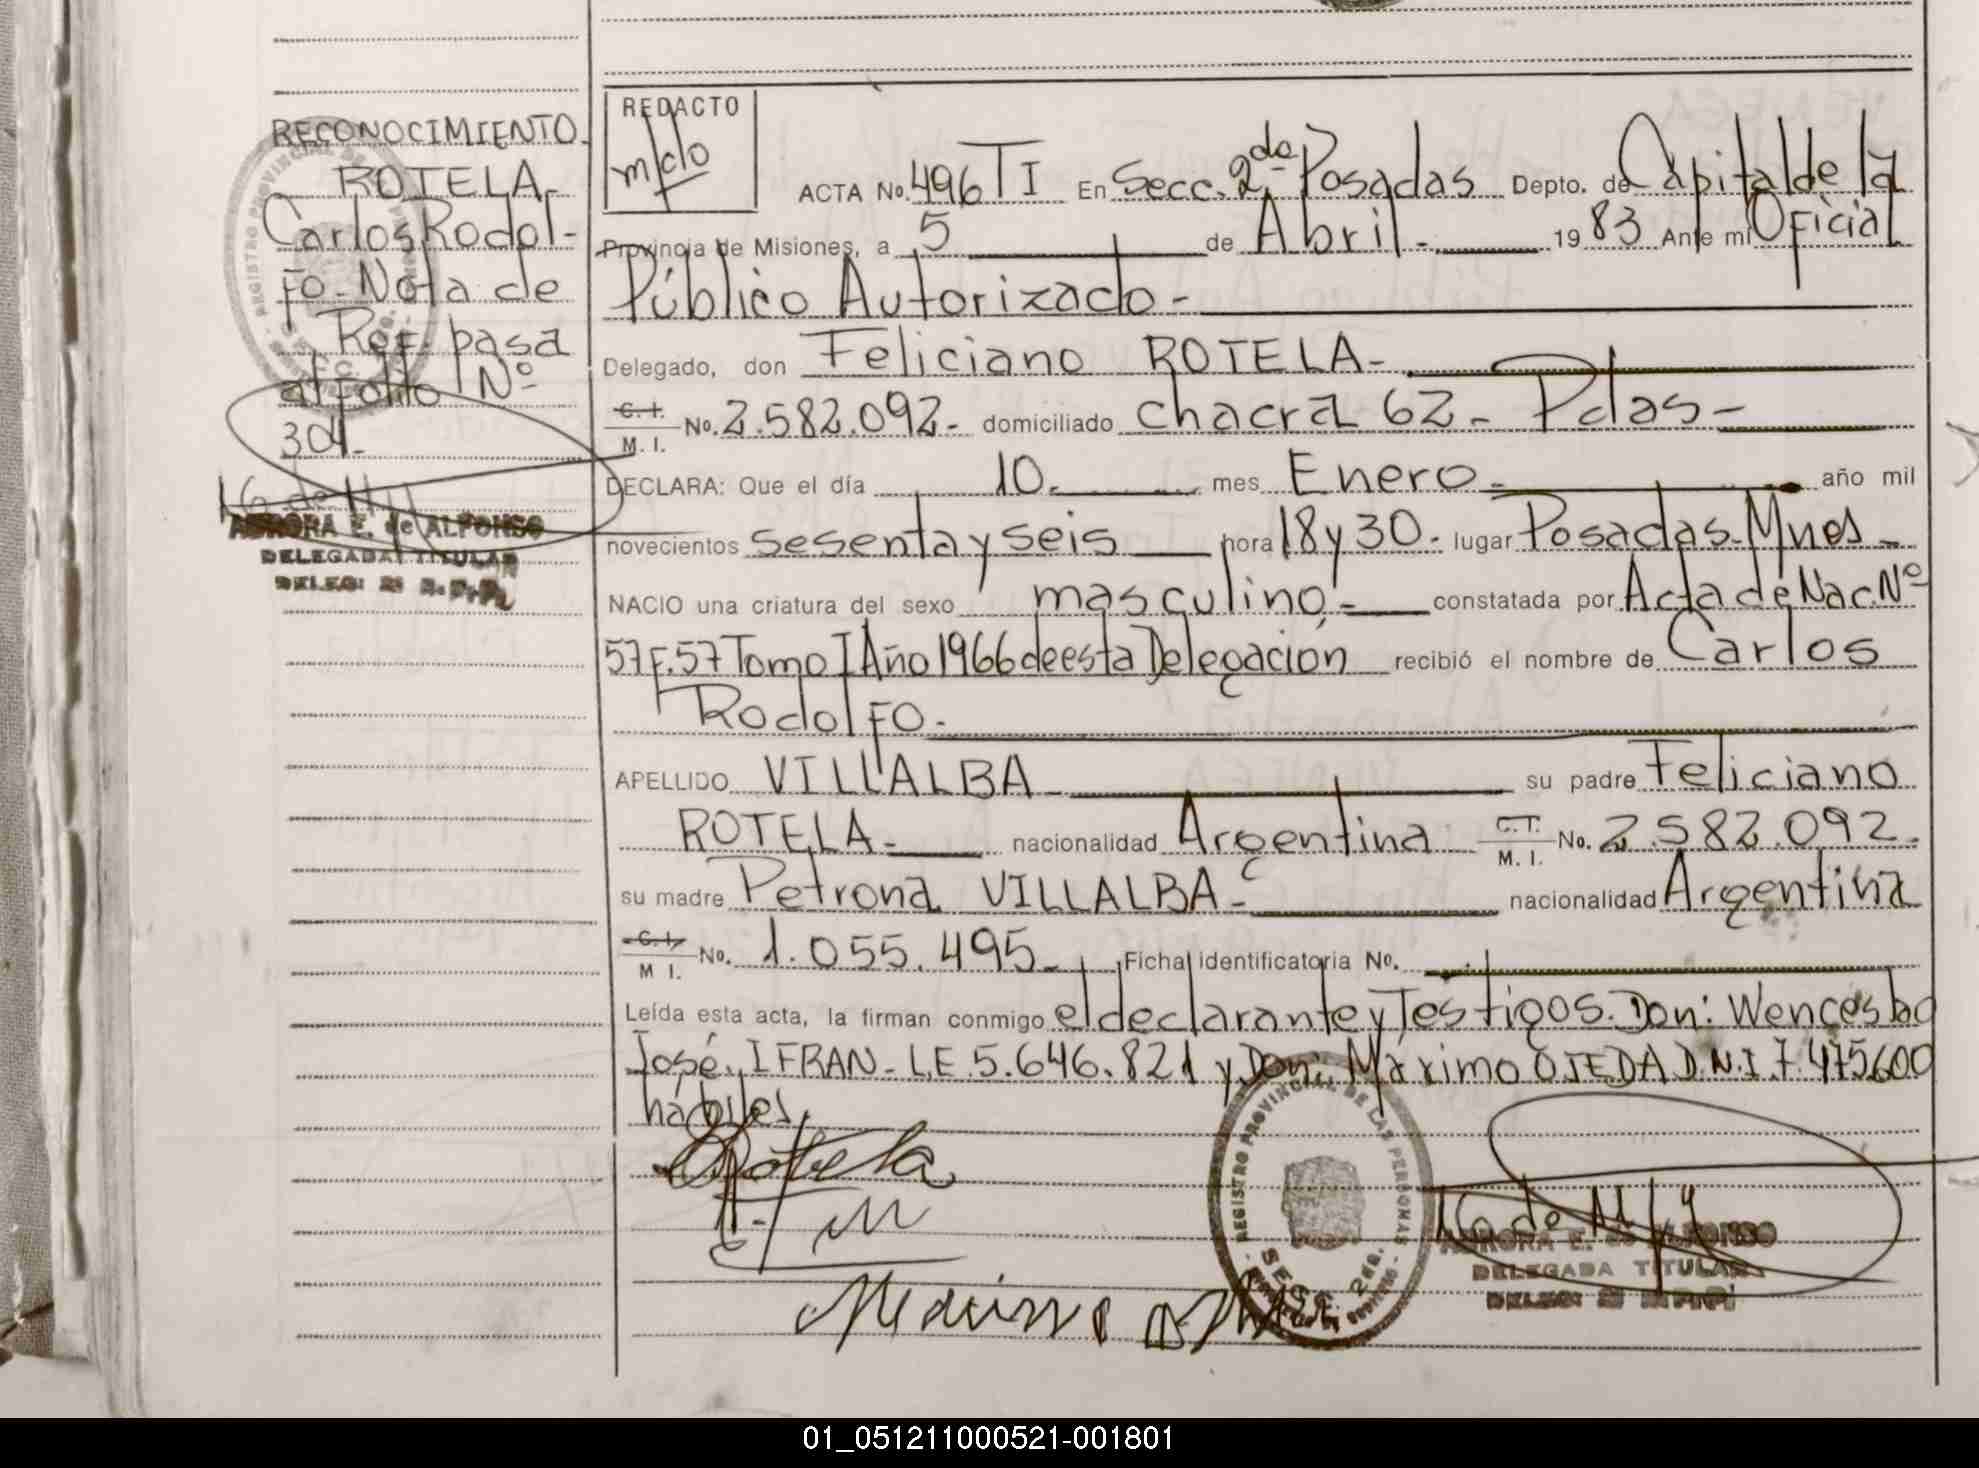 RECONOCIMIENTO.
ROTELA-
Carlos Rodol-
fo- Nota de
Ref. pasa
al folio Nº
304-
AURORA E. de ALFONSO
DELEGADA TITULAR
DELEG: 2ª R.P.P.
REDACTO
m/do
ACTA No. 496 T I En Secc. 2da. Posadas Depto. de Capital de la
Provincia de Misiones, a 5 de Abril- 19 83 Ante mí Oficial
Público Autorizado-
Delegado, don Feliciano ROTELA-
C. I. M. I. No. 2.582.092- domiciliado chacra 62- Pdas-
DECLARA: Que el día 10- mes Enero- año mil
novecientos sesenta y seis hora 18 y 30- lugar Posadas-Mnes-
NACIO una criatura del sexo masculino- constatada por Acta de Nac. Nº
57 F. 57 Tomo I Año 1966 de esta Delegación recibió el nombre de Carlos
Rodolfo-
APELLIDO VILLALBA- su padre Feliciano
ROTELA- nacionalidad Argentina C. I. M. I. No. 2.582.092-
su madre Petrona VILLALBA- nacionalidad Argentina
C. I. M I. No. 1.055.495- Ficha identificatoria No.
Leída esta acta, la firman conmigo el declarante y Testigos. Don: Wenceslao
José IFRAN- L.E. 5.646.821 y Don: Máximo OJEDA D.N.I. 7.475600
hábiles.
Rotela
REGISTRO PROVINCIAL DE LAS PERSONAS
SECC. 2da.
AURORA E. de ALFONSO
DELEGADA TITULAR
DELEG: 2ª R.P.P.
01_051211000521-001801